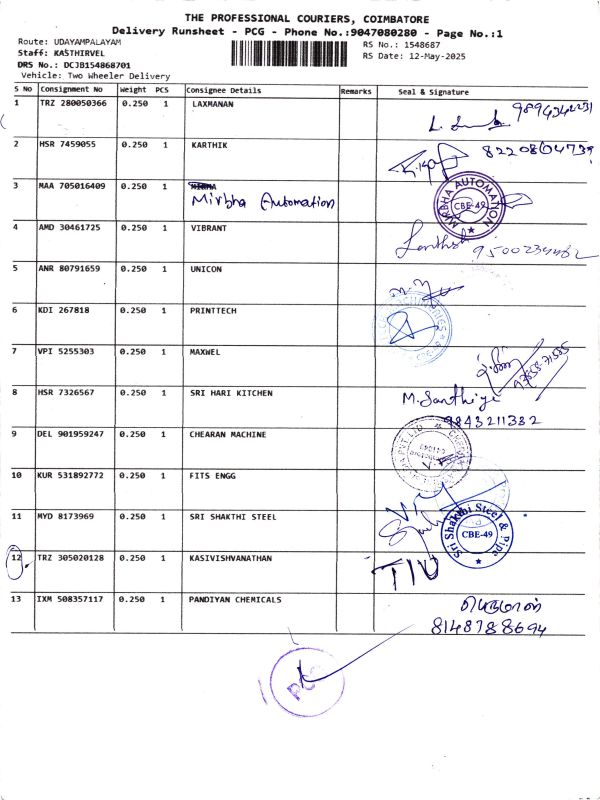 THE PROFESSIONAL COURIERS, COIMBATORE
Delivery Runsheet - PCG - Phone No.:9047080280 - Page No.:1
Route: UDAYAMPALAYAM
RS No.: 1548687
Staff: KASTHIRVEL
RS Date: 12-May-2025
DRS No.: DCJB154868701
Vehicle: Two Wheeler Delivery
S No Consignment No Weight PCS Consignee Details Remarks Seal & Signature
1 TRZ 280050366 0.250 1 LAXMANAN
2 HSR 7459055 0.250 1 KARTHIK 8220804739
3 MAA 705016409 0.250 1 Mirbha Automation MIRBHA AUTOMATION CBE-49
4 AMD 30461725 0.250 1 VIBRANT 9500234462
5 ANR 80791659 0.250 1 UNICON
6 KDI 267818 0.250 1 PRINTTECH
7 VPI 5255303 0.250 1 MAXWEL 97858-71585
8 HSR 7326567 0.250 1 SRI HARI KITCHEN M. Santhiya
9843211332
9 DEL 901959247 0.250 1 CHEARAN MACHINE
10 KUR 531892772 0.250 1 FITS ENGG
11 MYD 8173969 0.250 1 SRI SHAKTHI STEEL Sri Shakthi Steel & Pipe CBE-49
12 TRZ 305020128 0.250 1 KASIVISHVANATHAN
13 IXM 508357117 0.250 1 PANDIYAN CHEMICALS பெருமாள்
8148788694